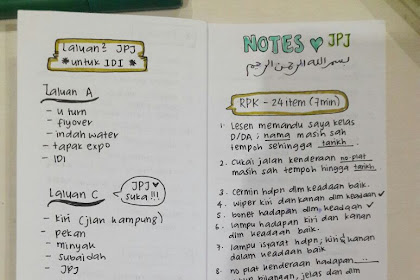 Laluan² JPJ
* untuk IDI *
Laluan A
- u turn
- flyover
- indah water
- tapak expo
- IDI
Laluan C
JPJ ♥
suka !!!
- kiri (jlan kampung)
- pekan
- minyak
- subaidah
- JPJ
NOTES ♥ JPJ
بسم الله الرحمن الرحيم
RPK - 24 item (7min)
1. Lesen memandu saya kelas
D/DA ; nama masih sah
tempoh sehingga tarikh.
2. Cukai jalan kenderaan no plat
masih sah tempoh hingga tarikh.
3. Cermin hdpn dlm keadaan baik.
4. wiper kiri dan kanan dlm keadaan ✓
5. bonet hadapan dlm keadaan ✓
6. lampu hadapan kiri dan kanan
dlm keadaan baik.
7. lampu isyarat hdpn, kiri & kanan
dalam keadaan baik.
8. no plat kenderaan hadapan
bilangan, jelas dan dlm